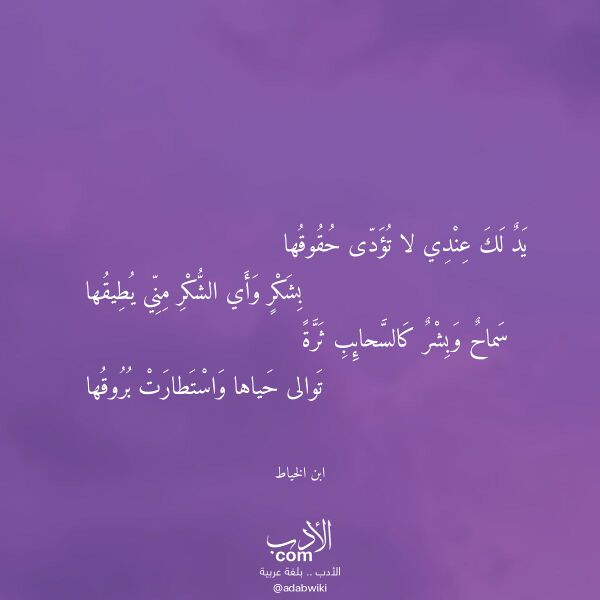 يَدٌ لَكَ عِنْدِي لا تُؤَدّى حُقُوقُها
بِشَكْرٍ وَأَي الشُّكْرِ مِنِّي يُطِيقُها
سَماحٌ وَبِشْرٌ كَالسَّحائِبِ ثَرَّةً
تَوالى حَياها وَاسْتَطارَتْ بُرُوقُها
ابن الخياط
الأدب
com
الأدب .. بلغة عربية
@adabwiki